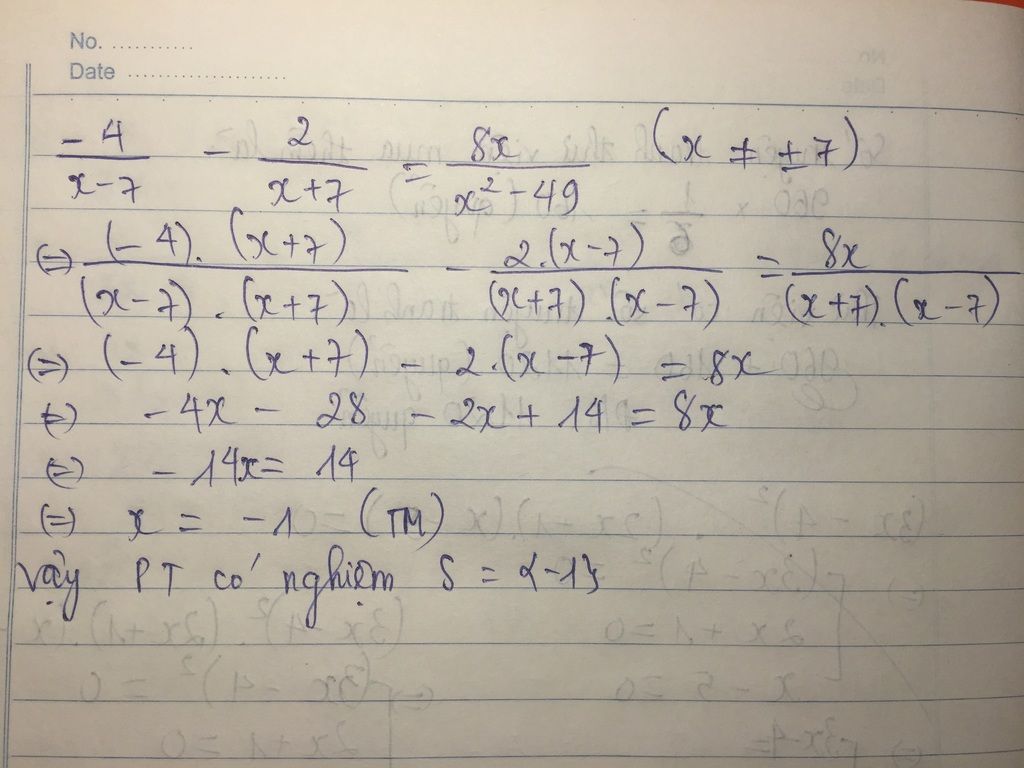 No. ...........
Date ......................
-4/(x-7) - 2/(x+7) = 8x/(x²-49) (x ≠ ±7)
⇔ (-4).(x+7)/((x-7).(x+7)) - 2.(x-7)/((x+7).(x-7)) = 8x/((x+7).(x-7))
⇔ (-4).(x+7) - 2.(x-7) = 8x
⇔ -4x - 28 - 2x + 14 = 8x
⇔ -14x = 14
⇔ x = -1 (TM)
Vậy PT có nghiệm S = {-1}